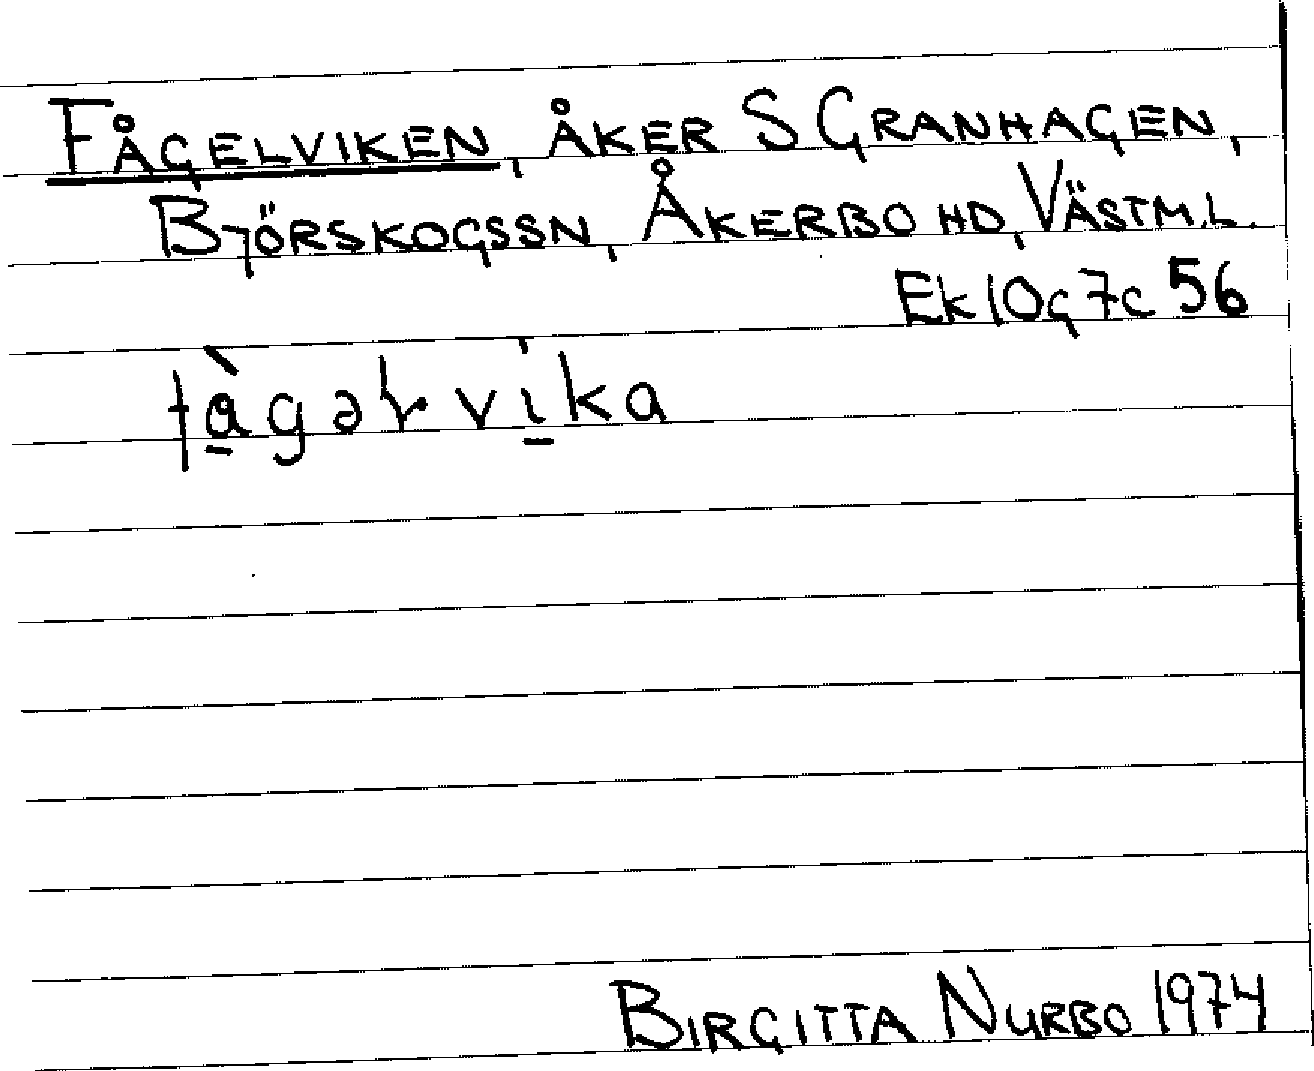 FÅGELVIKEN, ÅKER S GRANHAGEN,
BJÖRSKOGSSN, ÅKERBO HD, VÄSTM.L.
Ek 10g7c 56
BIRGITTA NURBO 1974